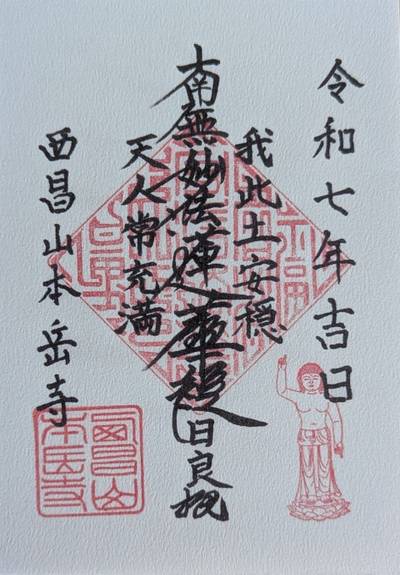 令和七年吉日
我此土安穏
南無妙法蓮華経
日良
天人常充満
西昌山本岳寺